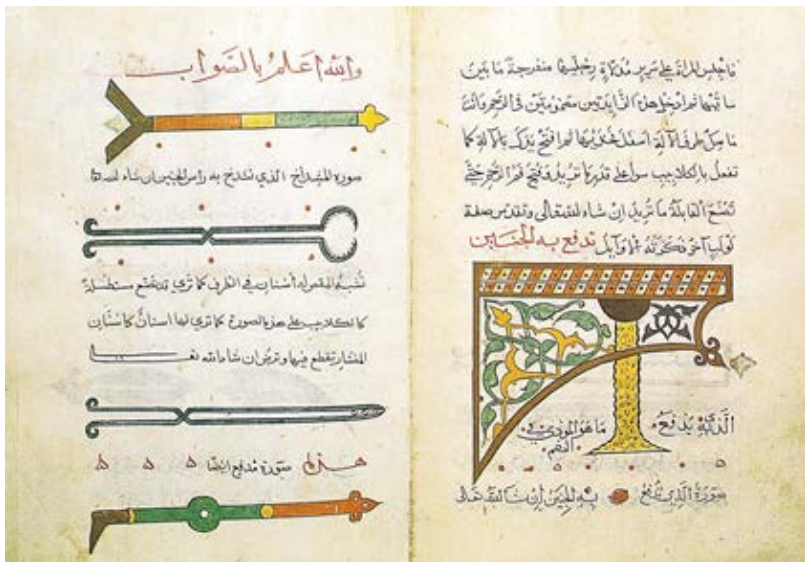 فاجلس المراة على سرير مدلاة رجليها منفرجة ما بين
ساقيها ثم ادخل هذه الزايدتين مضمومتين في الرحم وانت
ماسك طرف الآلة اسفل فخذيها ثم افتح يدك بالآلة كما
تفعل بالكلاليب سوا على قدر ما تريد فتح فم الرحم حتى
تصنع القابلة ما تريد ان شاء الله تعالى وتقدس صفة
لولب آخر ذكرته الاوايل تدفع به الجنين
الذي يدفع ما هو الموذي في
الفم
صورة الذي يدفع به الجنين ان شا الله تعالى
والله اعلم بالصواب
صورة المشداخ الذي نشدخ به راس الجنين ان شاء الله
تشبه المقص له اسنان في الطرف كما ترى قد يصنع مستطيلة
كالكلاليب على هذه الصورة كما ترى لها اسنان كاسنان
المنشار تقطع فيها وترض ان شاء الله تعا
هذه صورة مدفع ايضا